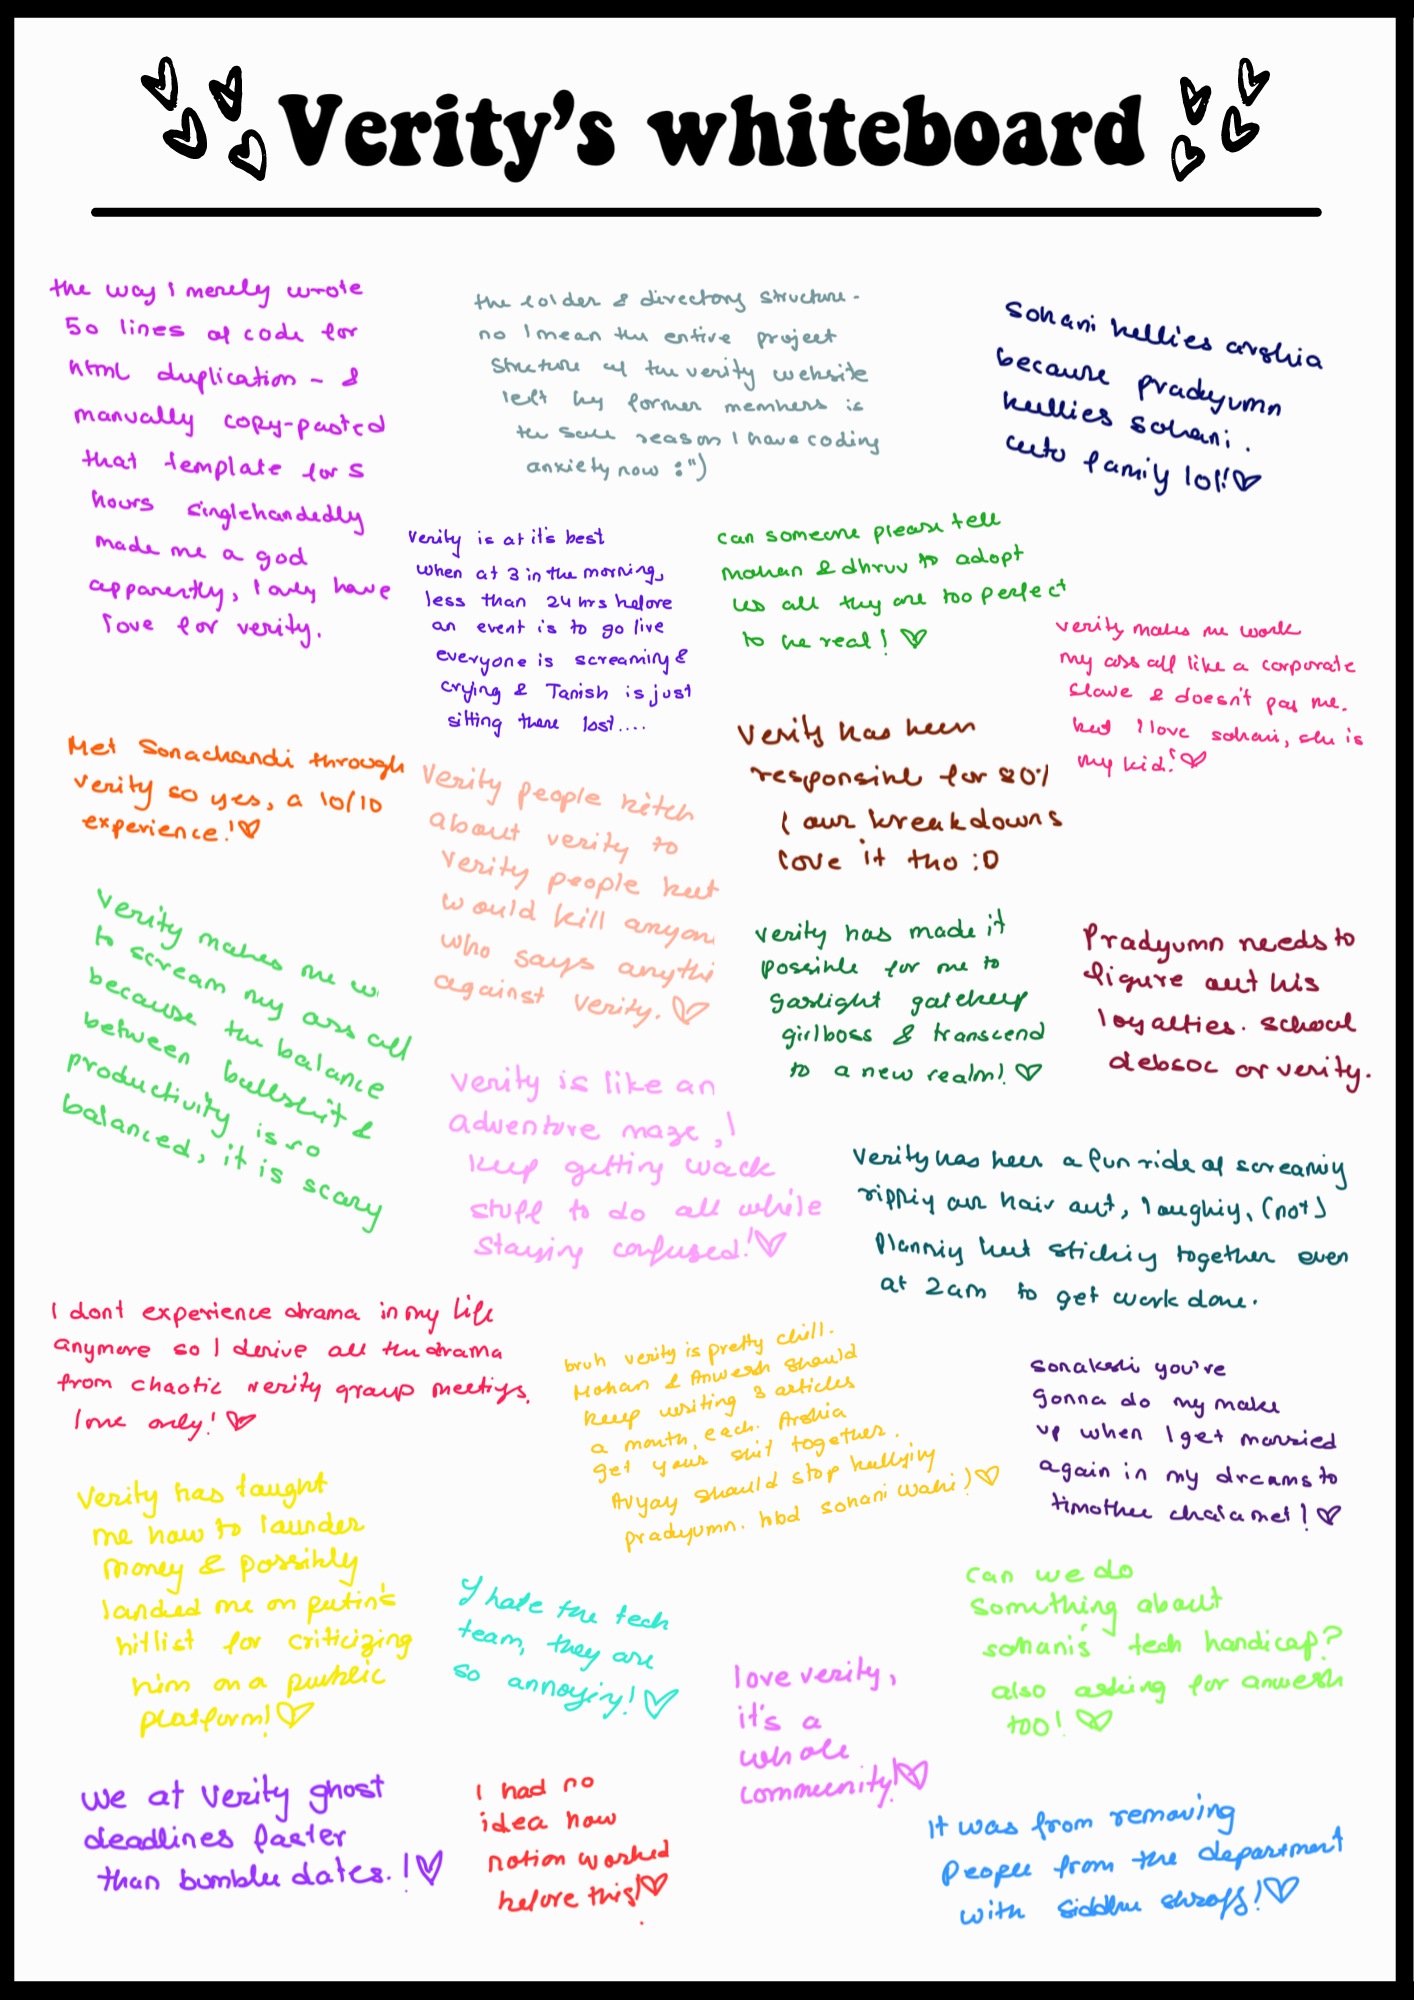 Verity's whiteboard
the way I merely wrote
50 lines of code for
html duplication - &
manually copy-pasted
that template for 5
hours singlehandedly
made me a god
apparently, I only have
love for verity.
the folder & directory structure -
no I mean the entire project
structure of the verity website
left by former members is
the sole reason I have coding
anxiety now :")
sohani bullies arshia
because pradyumn
bullies sohani.
cute family lol!
verity is at it's best
when at 3 in the morning,
less than 24 hrs before
an event is to go live
everyone is screaming &
crying & Tanish is just
sitting there lost....
can someone please tell
mohan & dhruv to adopt
us all they are too perfect
to be real!
verity makes me work
my ass off like a corporate
slave & doesn't pay me.
but I love sohani, she is
my kid!
Met Sonachandi through
verity so yes, a 10/10
experience!
Verity people bitch
about verity to
verity people but
would kill anyon
who says anythi
against verity.
Verity has been
responsible for 80%
of our breakdowns
love it tho :D
verity makes me w
to scream my ass off
because the balance
between bullshit &
productivity is so
balanced, it is scary
verity has made it
possible for me to
gaslight gatekeep
girlboss & transcend
to a new realm!
Pradyumn needs to
figure out his
loyalties. school
debsoc or verity.
verity is like an
adventure maze, I
keep getting wack
stuff to do all while
staying confused!
verity has been a fun ride of screaming
rippiy our hair out, laughiy, (not)
planniy but stickiy together even
at 2am to get work done.
I dont experience drama in my life
anymore so I derive all the drama
from chaotic verity group meetiys.
love only!
bruh verity is pretty chill.
Mohan & Anwesh should
keep writing 3 articles
a month each. Arshia
get your shit together.
Avyay should stop bullyiy
pradyumn. hbd sohani wahi)
sonakshi you're
gonna do my make
up when I get married
again in my dreams to
timothee chalamet!
Verity has taught
me how to launder
money & possibly
landed me on putin's
hitlist for criticizing
him on a public
platform!
I hate the tech
team, they are
so annoyiy!
love verity,
it's a
whole
community!
can we do
something about
sohani's tech handicap?
also asking for anwesh
too!
we at verity ghost
deadlines faster
than bumble dates.!
I had no
idea how
notion worked
before this!
It was from removing
People from the department
with Siddhu shroff!